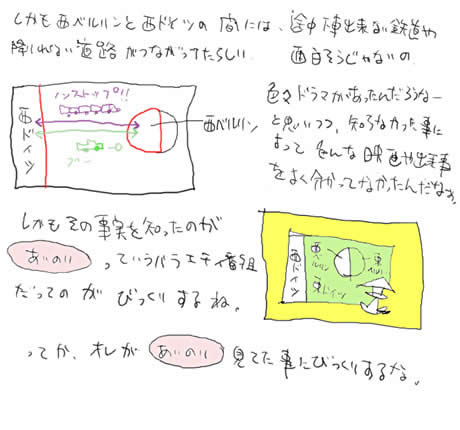 しかも西ベルリンと西ドイツの間には、途中下車出来ない鉄道や
降りれない道路がつながってたらしい。面白そうじゃないの。
ノンストップ!!
西ドイツ
ブー
西ベルリン
色々ドラマがあったんだろうなー
と思いつつ、知らなかった事に
よって
映画や出来事
をよく分かってなかったんだなぁ。
しかもその事実を知ったのが
あいのり っていうバラエティ番組
だってのがびっくりするね。
西ドイツ
西ベルリン
東ドイツ
ってか、オレが あいのり 見てた事にびっくりするな。